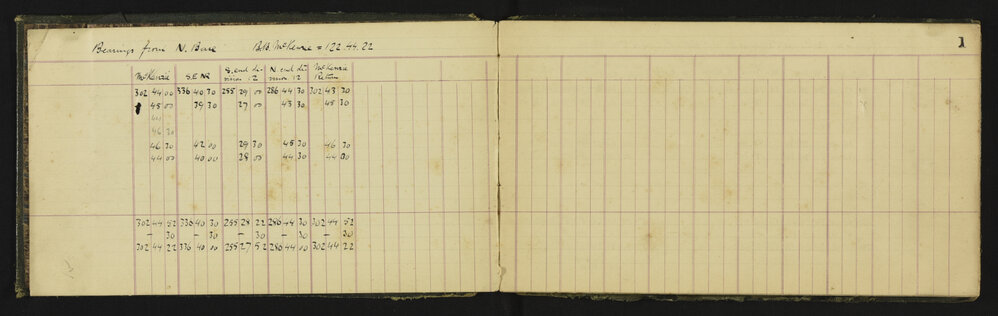 Bearings from N. Base B.B. McKenzie = 122.44.22
1
McKenzie S.E N2 S. end di- N end di- McKenzie
vision 12 vision 12 Return
302 44 00 336 40 30 255 29 00 286 44 30 302 43 30
45 00 39 30 27 00 43 30 45 30
46 30
46 30 42 00 29 30 45 30 46 30
44 00 40 00 28 00 44 30 44 00
302 44 52 336 40 30 255 28 22 286 44 30 302 44 52
– 30 – 30 – 30 – 30 – 30
302 44 22 336 40 00 255 27 52 286 44 00 302 44 22